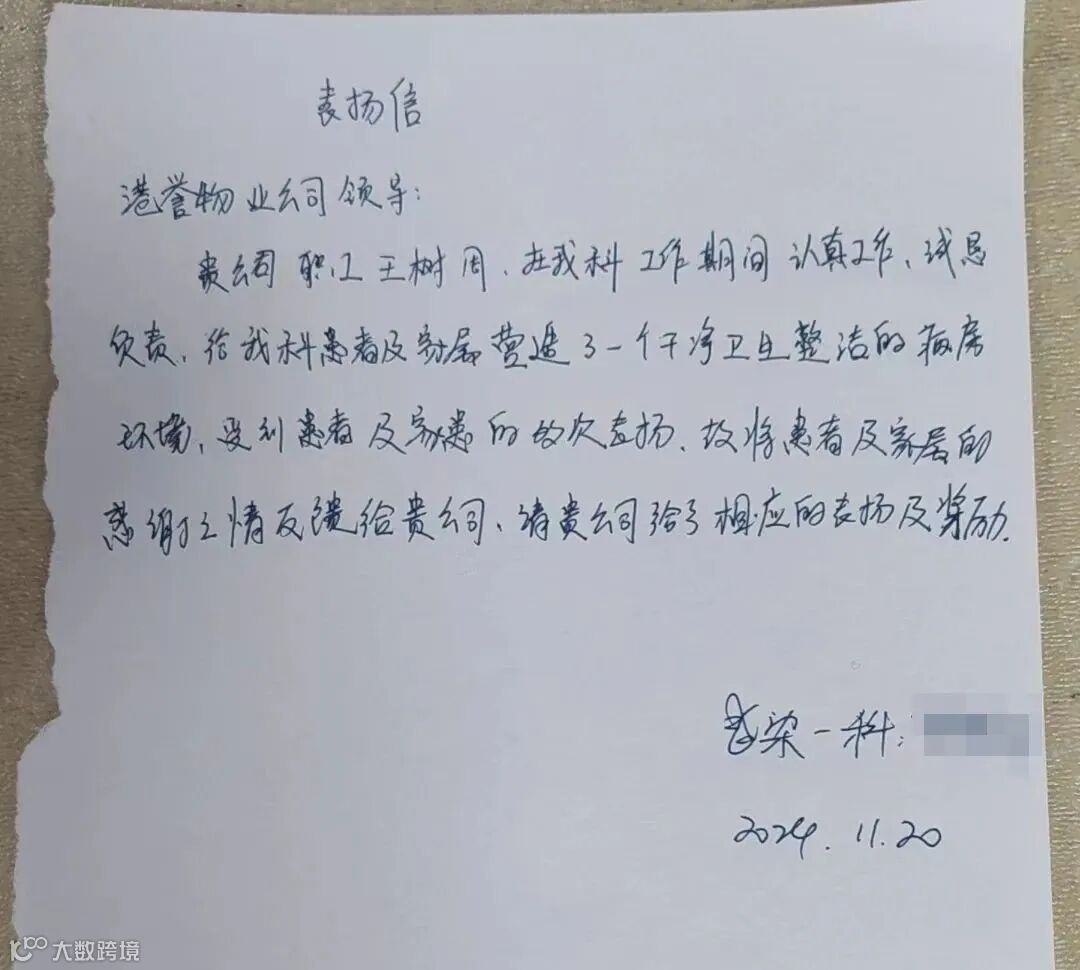 表扬信
港誉物业公司领导:
贵公司职工王树周、在我科工作期间认真工作、
负责、给我科患者及家属营造了一个干净卫生整洁的病房
环境,受到患者及家患的多次表扬、故将患者及家属的
感谢之情反馈给贵公司、请贵公司给予相应的表扬及奖励.
感染一科:
2024.11.20
大数跨境